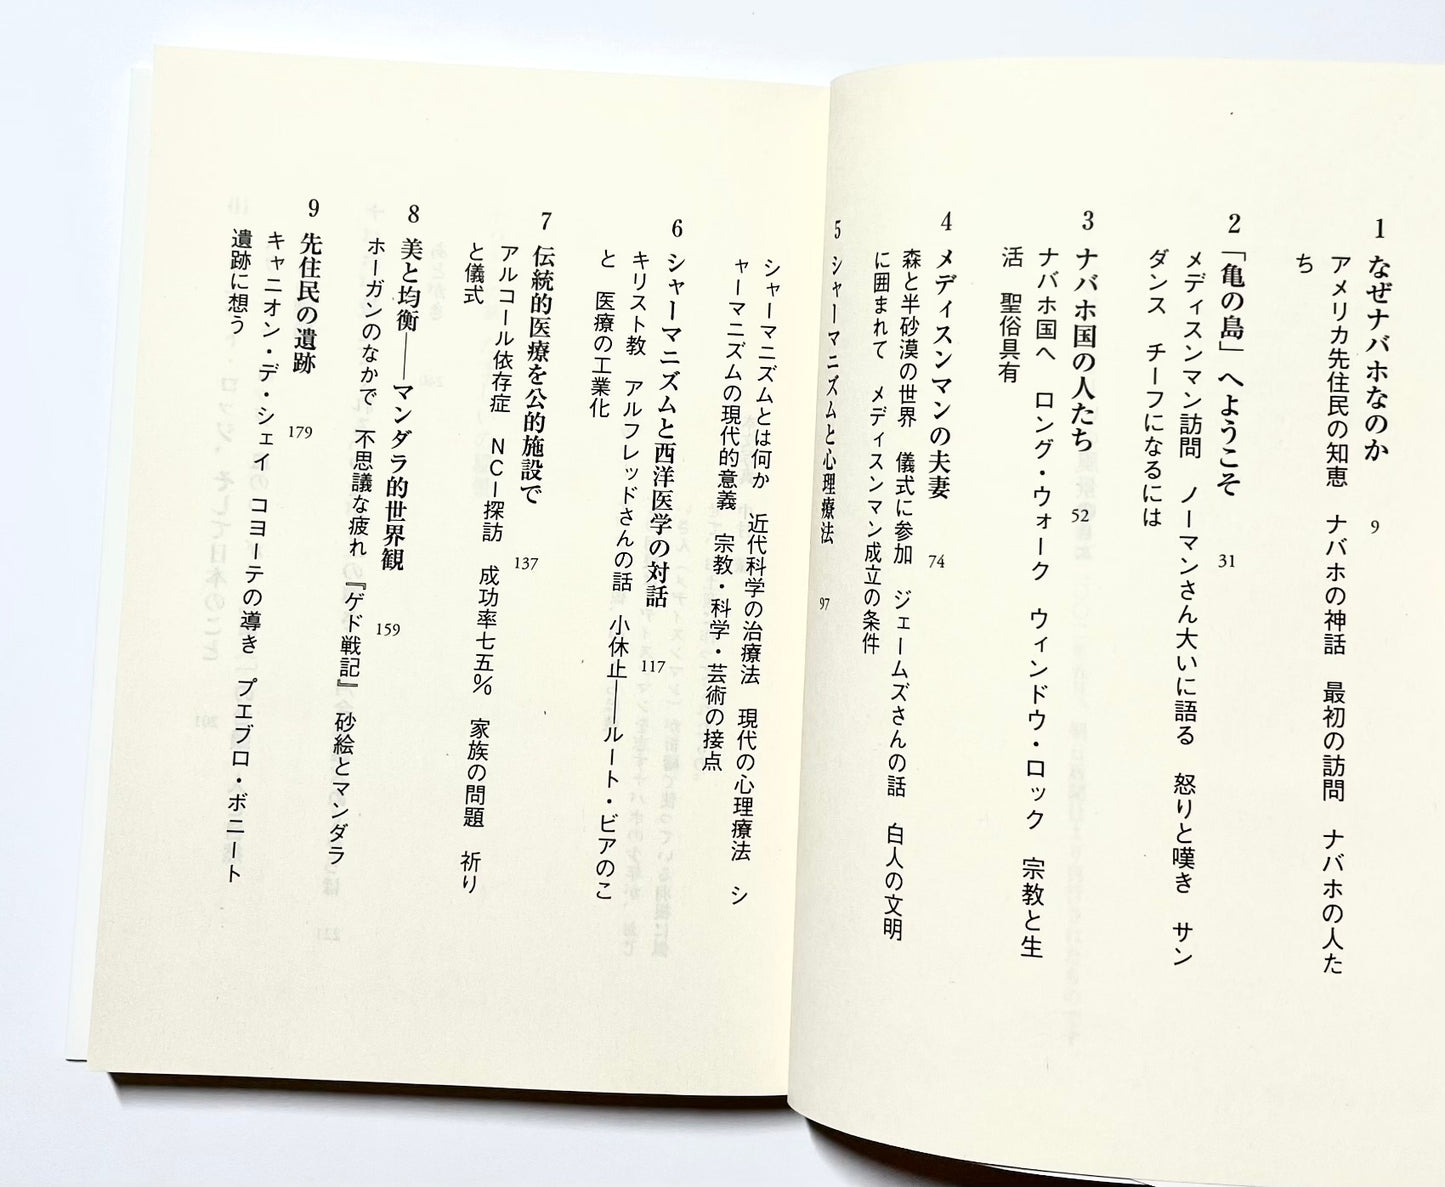 1 なぜナバホなのか 9
アメリカ先住民の知恵 ナバホの神話 最初の訪問 ナバホの人た
ち
2 「亀の島」へようこそ 31
メディスンマン訪問 ノーマンさん大いに語る 怒りと嘆き サン
ダンス チーフになるには
3 ナバホ国の人たち 52
ナバホ国へ ロング・ウォーク ウィンドウ・ロック 宗教と生
活 聖俗具有
4 メディスンマンの夫妻 74
森と半砂漠の世界 儀式に参加 ジェームズさんの話 白人の文明
に囲まれて メディスンマン成立の条件
5 シャーマニズムと心理療法 97
シャーマニズムとは何か 近代科学の治療法 現代の心理療法 シ
ャーマニズムの現代的意義 宗教・科学・芸術の接点
6 シャーマニズムと西洋医学の対話 117
キリスト教 アルフレッドさんの話 小休止――ルート・ビアのこ
と 医療の工業化
7 伝統的医療を公的施設で 137
アルコール依存症 NCI探訪 成功率七五% 家族の問題 祈り
と儀式
8 美と均衡――マンダラ的世界観 159
ホーガンのなかで 不思議な疲れ 『ゲド戦記』 砂絵とマンダラ
9 先住民の遺跡 179
キャニオン・デ・シェイ コヨーテの導き プエブロ・ボニート
遺跡に想う